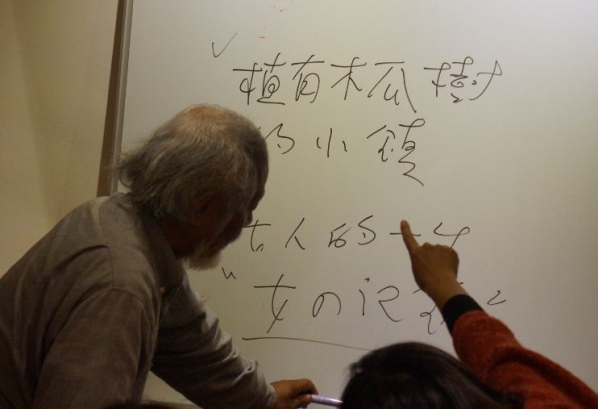 植有木瓜樹
的小鎮
人的一
女の記